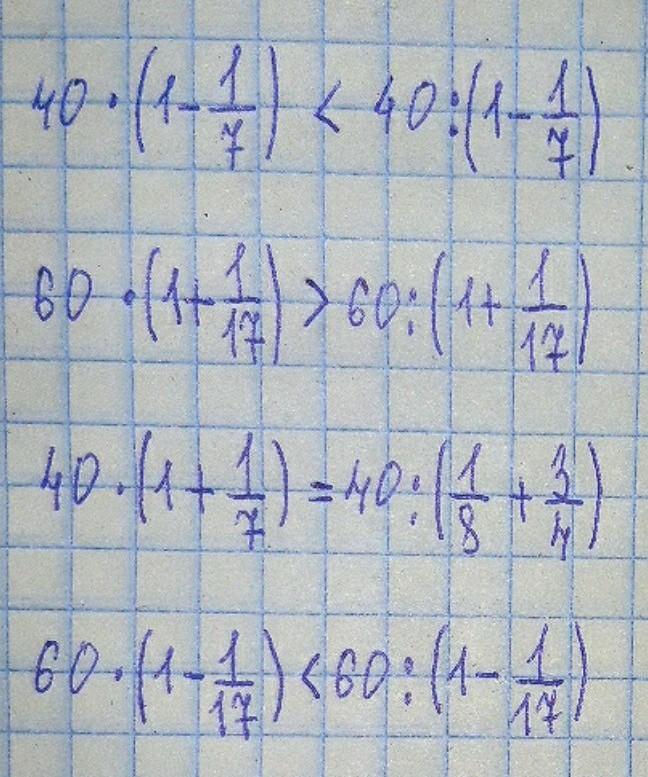 40 · (1 - 1/7) < 40 : (1 - 1/7)
60 · (1 + 1/17) > 60 : (1 + 1/17)
40 · (1 + 1/7) = 40 : (1/8 + 3/4)
60 · (1 - 1/17) < 60 : (1 - 1/17)